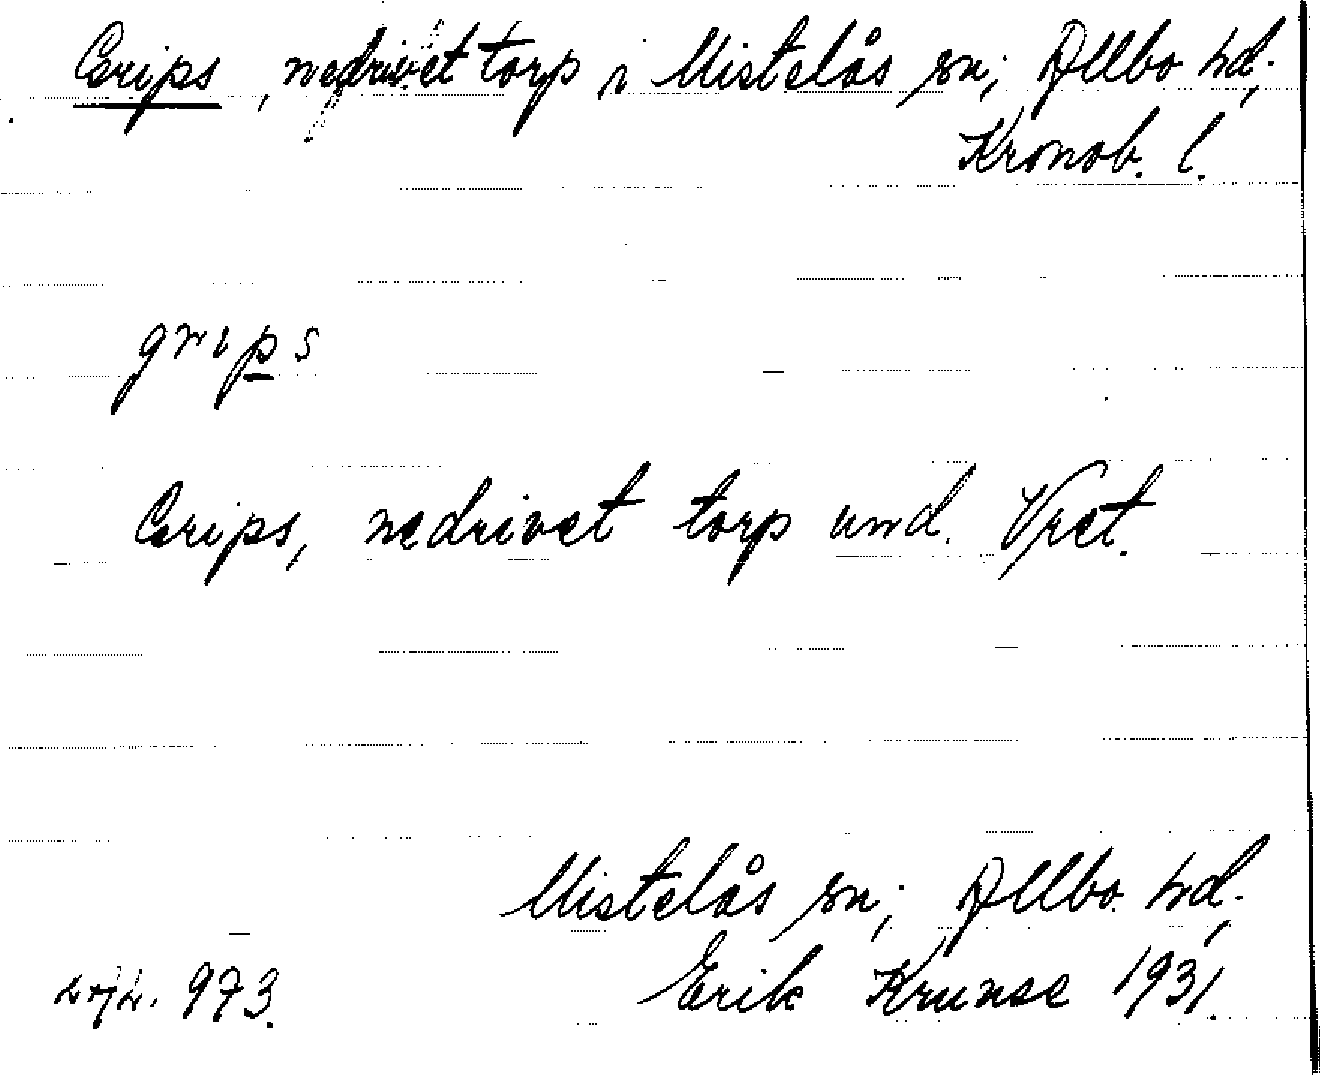 Grips, nedrivet torp i Mistelås sn; Allbo hd.
Kronob. l.
grips
Grips, nedrivet torp und. Vret.
Mistelås sn; Allbo hd.
973. Erik Krunse 1931.